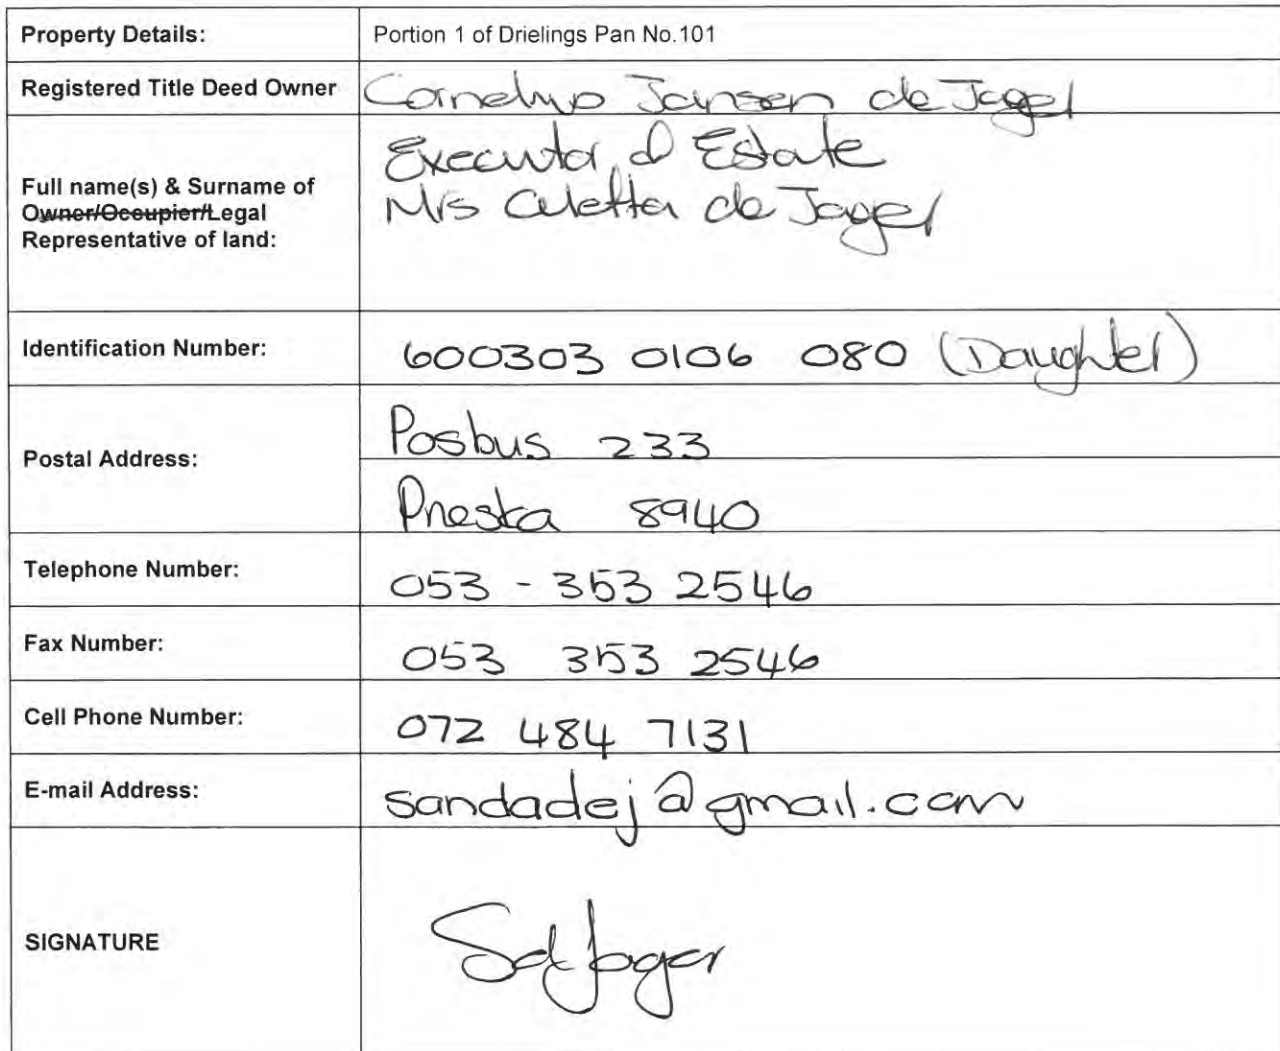 Property Details: Portion 1 of Drielings Pan No.101
Registered Title Deed Owner Cornelius Jansen de Jager
Executor of Estate
Mrs Aletta de Jager
Full name(s) & Surname of
Owner/Occupier/Legal
Representative of land:
Identification Number: 600303 0106 080 (Daughter)
Postal Address:
Posbus 233
Prieska 8940
Telephone Number: 053 - 353 2546
Fax Number: 053 353 2546
Cell Phone Number: 072 484 7131
E-mail Address: sandadej@gmail.com
SIGNATURE SdJager